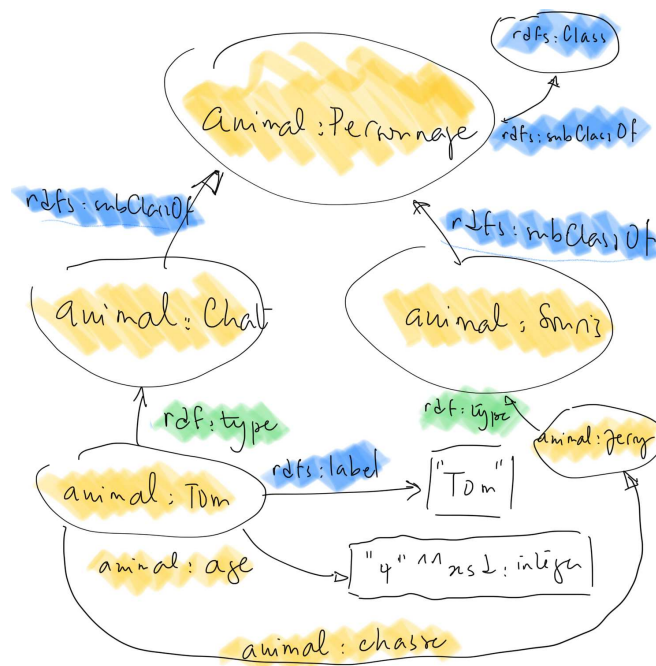 rdfs:Class
animal:Personnage
rdfs:subClassOf
rdfs:subClassOf
rdfs:subClassOf
animal:Chat
animal:Souris
rdf:type
rdf:type
animal:Jerry
rdfs:label
"Tom"
animal:Tom
animal:age
"4"^^xsd:integer
animal:chasse